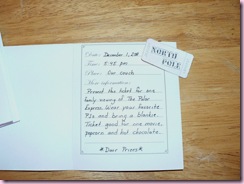 Date: December 1, 2011
Time: 5:45 pm
Place: Our couch
More information:
Present the ticket for one
family viewing of The Polar
Express. Wear your favorite
PJs and bring a blankie.
Ticket good for one movie,
popcorn and hot chocolate.
*Door Prizes*
NORTH
POLE